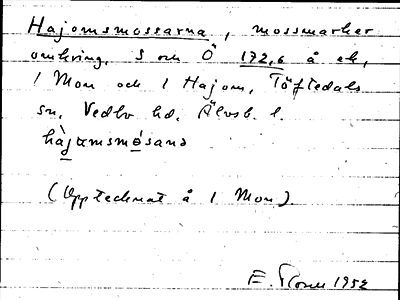 Hajomsmossarna, mossmarker
omkring, S och Ö 172,6 å ek,
1 Mon och 1 Hajom, Töftedals
sn, Vedbo hd, Älvsb. l.
(Upptecknat å 1 Mon).
1952